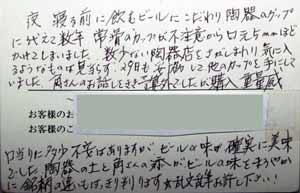 夜 寝る前に飲むビールにこだわり陶器のカップ
に代えて数年 常滑のカップが不注意から口元5mmほど
かけてしまいました 数少ない陶器店をさがしまわり 気に入
るようなものは見当らず 今日も妥協して他のカップを手にして
いました 角さんのお話しをきき ご購入 重量感
お客様のお
お客様の
口当りに多少不安はありますがビールの味が確実に美味
でした 陶器の土と角さんの添がビールの味をまろやか
に銘柄の違いもはっきり判ります 乱文筆お許し下さい!